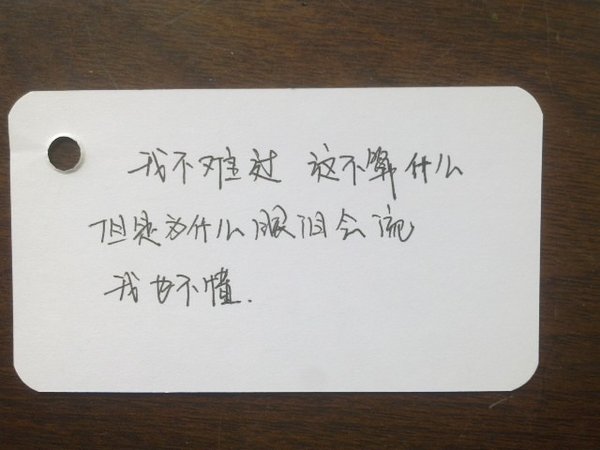 我不难过 这不算什么
但是为什么眼泪会流
我也不懂.